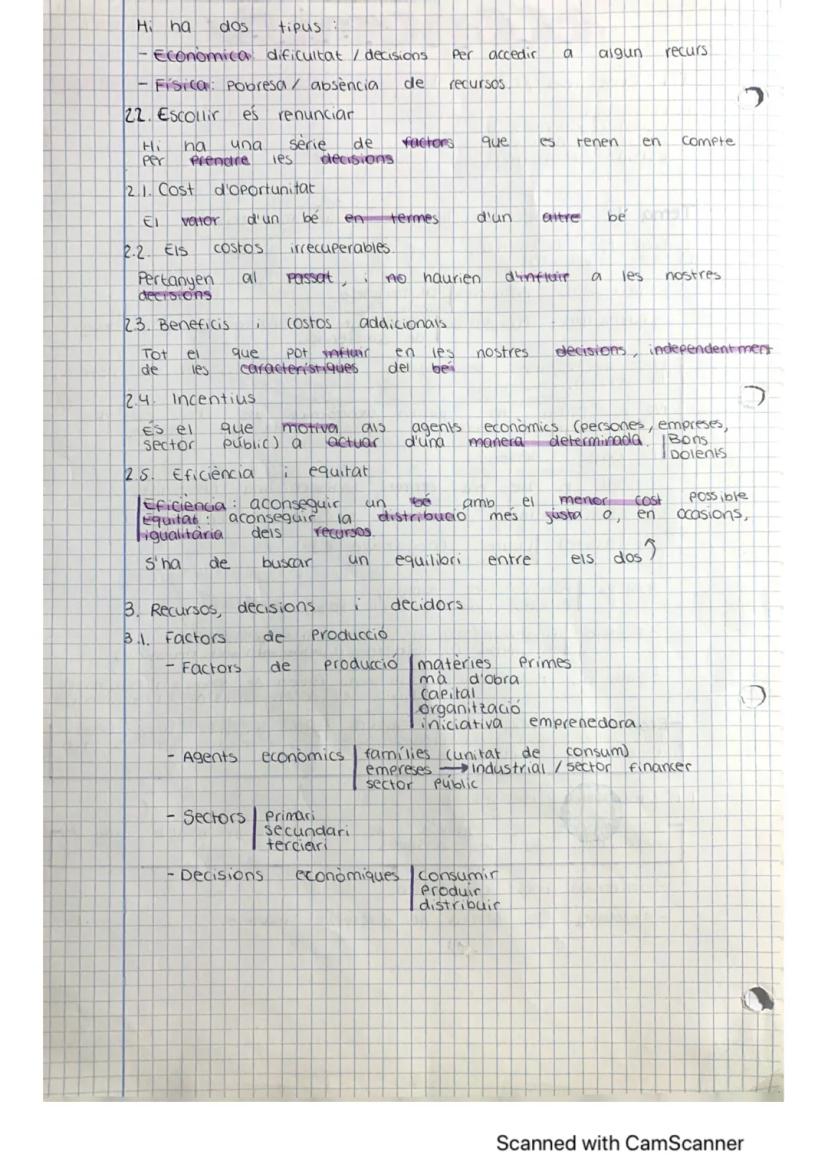 Hi ha dos tipus:
- Econòmica: dificultat / decisions per accedir a algun recurs
- Física: pobresa / absència de recursos.
22. Escollir és renunciar
Hi ha una sèrie de factors que es renen en compte
per prendre les decisions
2.1. Cost d'oportunitat
El valor d'un bé en termes d'un altre bé
2.2. Els costos irrecuperables.
Pertanyen al passat, i no haurien d'influir a les nostres
decisions
2.3. Beneficis i costos addicionals
Tot el que pot influir en les nostres decisions, independentment
de les característiques del bei
2.4. Incentius
És el que motiva als agents econòmics (persones, empreses,
sector públic) a actuar d'una manera determinada. Bons
Dolents
2.5. Eficiència i equitat
Eficiència: aconseguir un bé amb el menor cost possible
Equitat: aconseguir la distribució més justa o, en ocasions,
igualitària dels recursos.
S'ha de buscar un equilibri entre els dos
3. Recursos, decisions i decidors
3.1. Factors de producció
- Factors de producció matèries primes
mà d'obra
capital
organització
iniciativa emprenedora.
- Agents econòmics famílies (unitat de consum)
empreses → industrial / sector financer
sector públic
- Sectors primari
secundari
terciari
- Decisions econòmiques consumir
produir
distribuir
Scanned with CamScanner